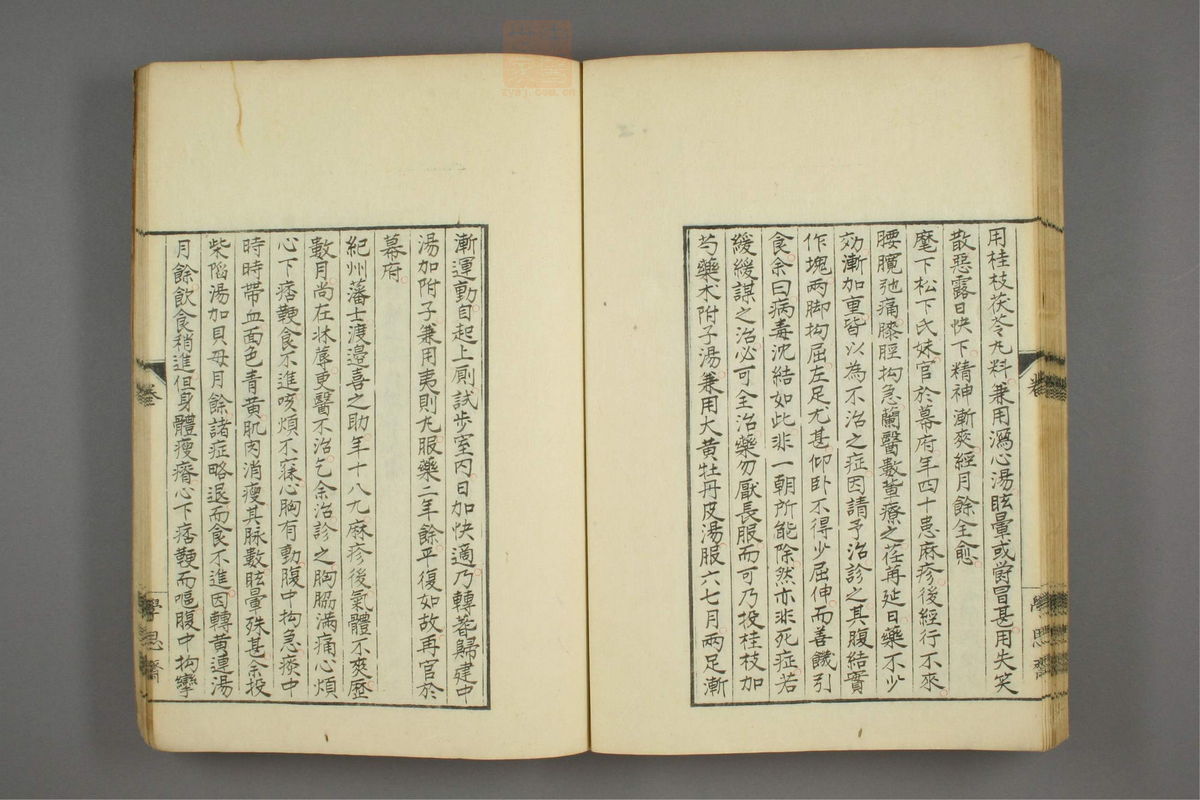 用桂枝茯苓丸料兼用瀉心湯眩暈或欝冒甚用失笑
散惡露日快下精神漸爽經月餘全愈
麾下松下氏妹官於幕府年四十患麻疹後經行不來
腰髖弛痛膝脛拘急蘭醫數輩療之荏苒延日藥不少
効漸加重皆以為不治之症因請予治診之其腹結實
作塊兩脚拘屈左足尤甚仰臥不得少屈伸而善饑引
食余曰病毒沈結如此非一朝所能除然亦非死症若
緩緩謀之治必可全治藥勿厭長服而可乃投桂枝加
芍藥朮附子湯兼用大黃牡丹皮湯服六七月兩足漸
漸運動自起上厠試步室內日加快適乃轉蓍歸建中
湯加附子兼用夷則丸服藥二年餘平復如故再官於
幕府
紀州藩士渡邉喜之助年十八九麻疹後氣體不爽歷
數月尚在牀蓐更醫不治乞余治診之胸脇滿痛心煩
心下痞鞕食不進咳煩不寐心胸有動腹中拘急痰中
時時帶血面色青黃肌肉消瘦其脉數眩暈殊甚余投
柴陷湯加貝母月餘諸症略退而食不進因轉黃連湯
月餘飲食稍進但身體瘦瘠心下痞鞕而嘔腹中拘攣
卷
學思齋
卷
學思齋
zysj.com.cn